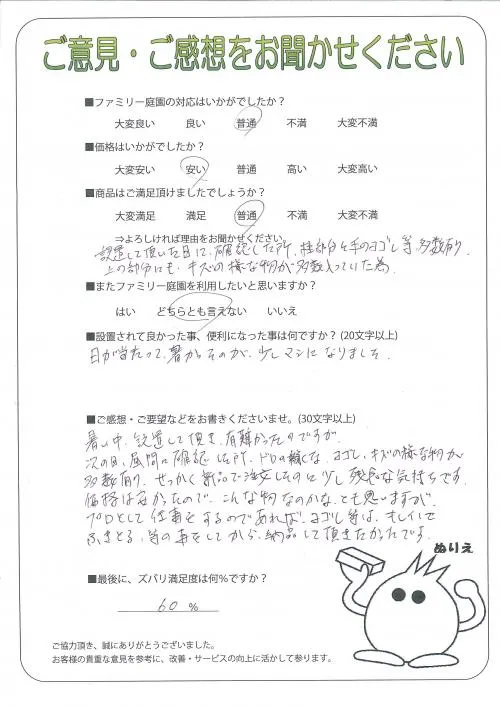 ご意見・ご感想をお聞かせください
■ファミリー庭園の対応はいかがでしたか？
大変良い 良い 普通 不満 大変不満
■価格はいかがでしたか？
大変安い 安い 普通 高い 大変高い
■商品はご満足頂けましたでしょうか？
大変満足 満足 普通 不満 大変不満
⇒よろしければ理由をお聞かせください。
設置して頂いた日に、確認した所、柱部分に手のヨゴレ等、多数有り、
上の部分にも、キズの様な物が多数入っていた為。
■またファミリー庭園を利用したいと思いますか？
はい どちらとも言えない いいえ
■設置されて良かった事、便利になった事は何ですか？(20文字以上)
日が当たって、暑かったのが、少しマシになりました。
■ご感想・ご要望などをお書きくださいませ。(30文字以上)
暑い中、設置して頂き、有難かったのですが、
次の日、昼間に確認した所、ドロの様な、ヨゴレ、キズの様な物が
多数有り、せっかく新品で注文したのに少し残念な気持ちです。
価格は安かったので、こんな物なのかな、とも思いますが、
プロとして仕事をするのであれば、ヨゴレ等は、キレイに
ふきとる、等の事をしてから、納品して頂きたかったです。
ぬりえ
■最後に、ズバリ満足度は何％ですか？
60 %
ご協力頂き、誠にありがとうございました。
お客様の貴重な意見を参考に、改善・サービスの向上に活かして参ります。